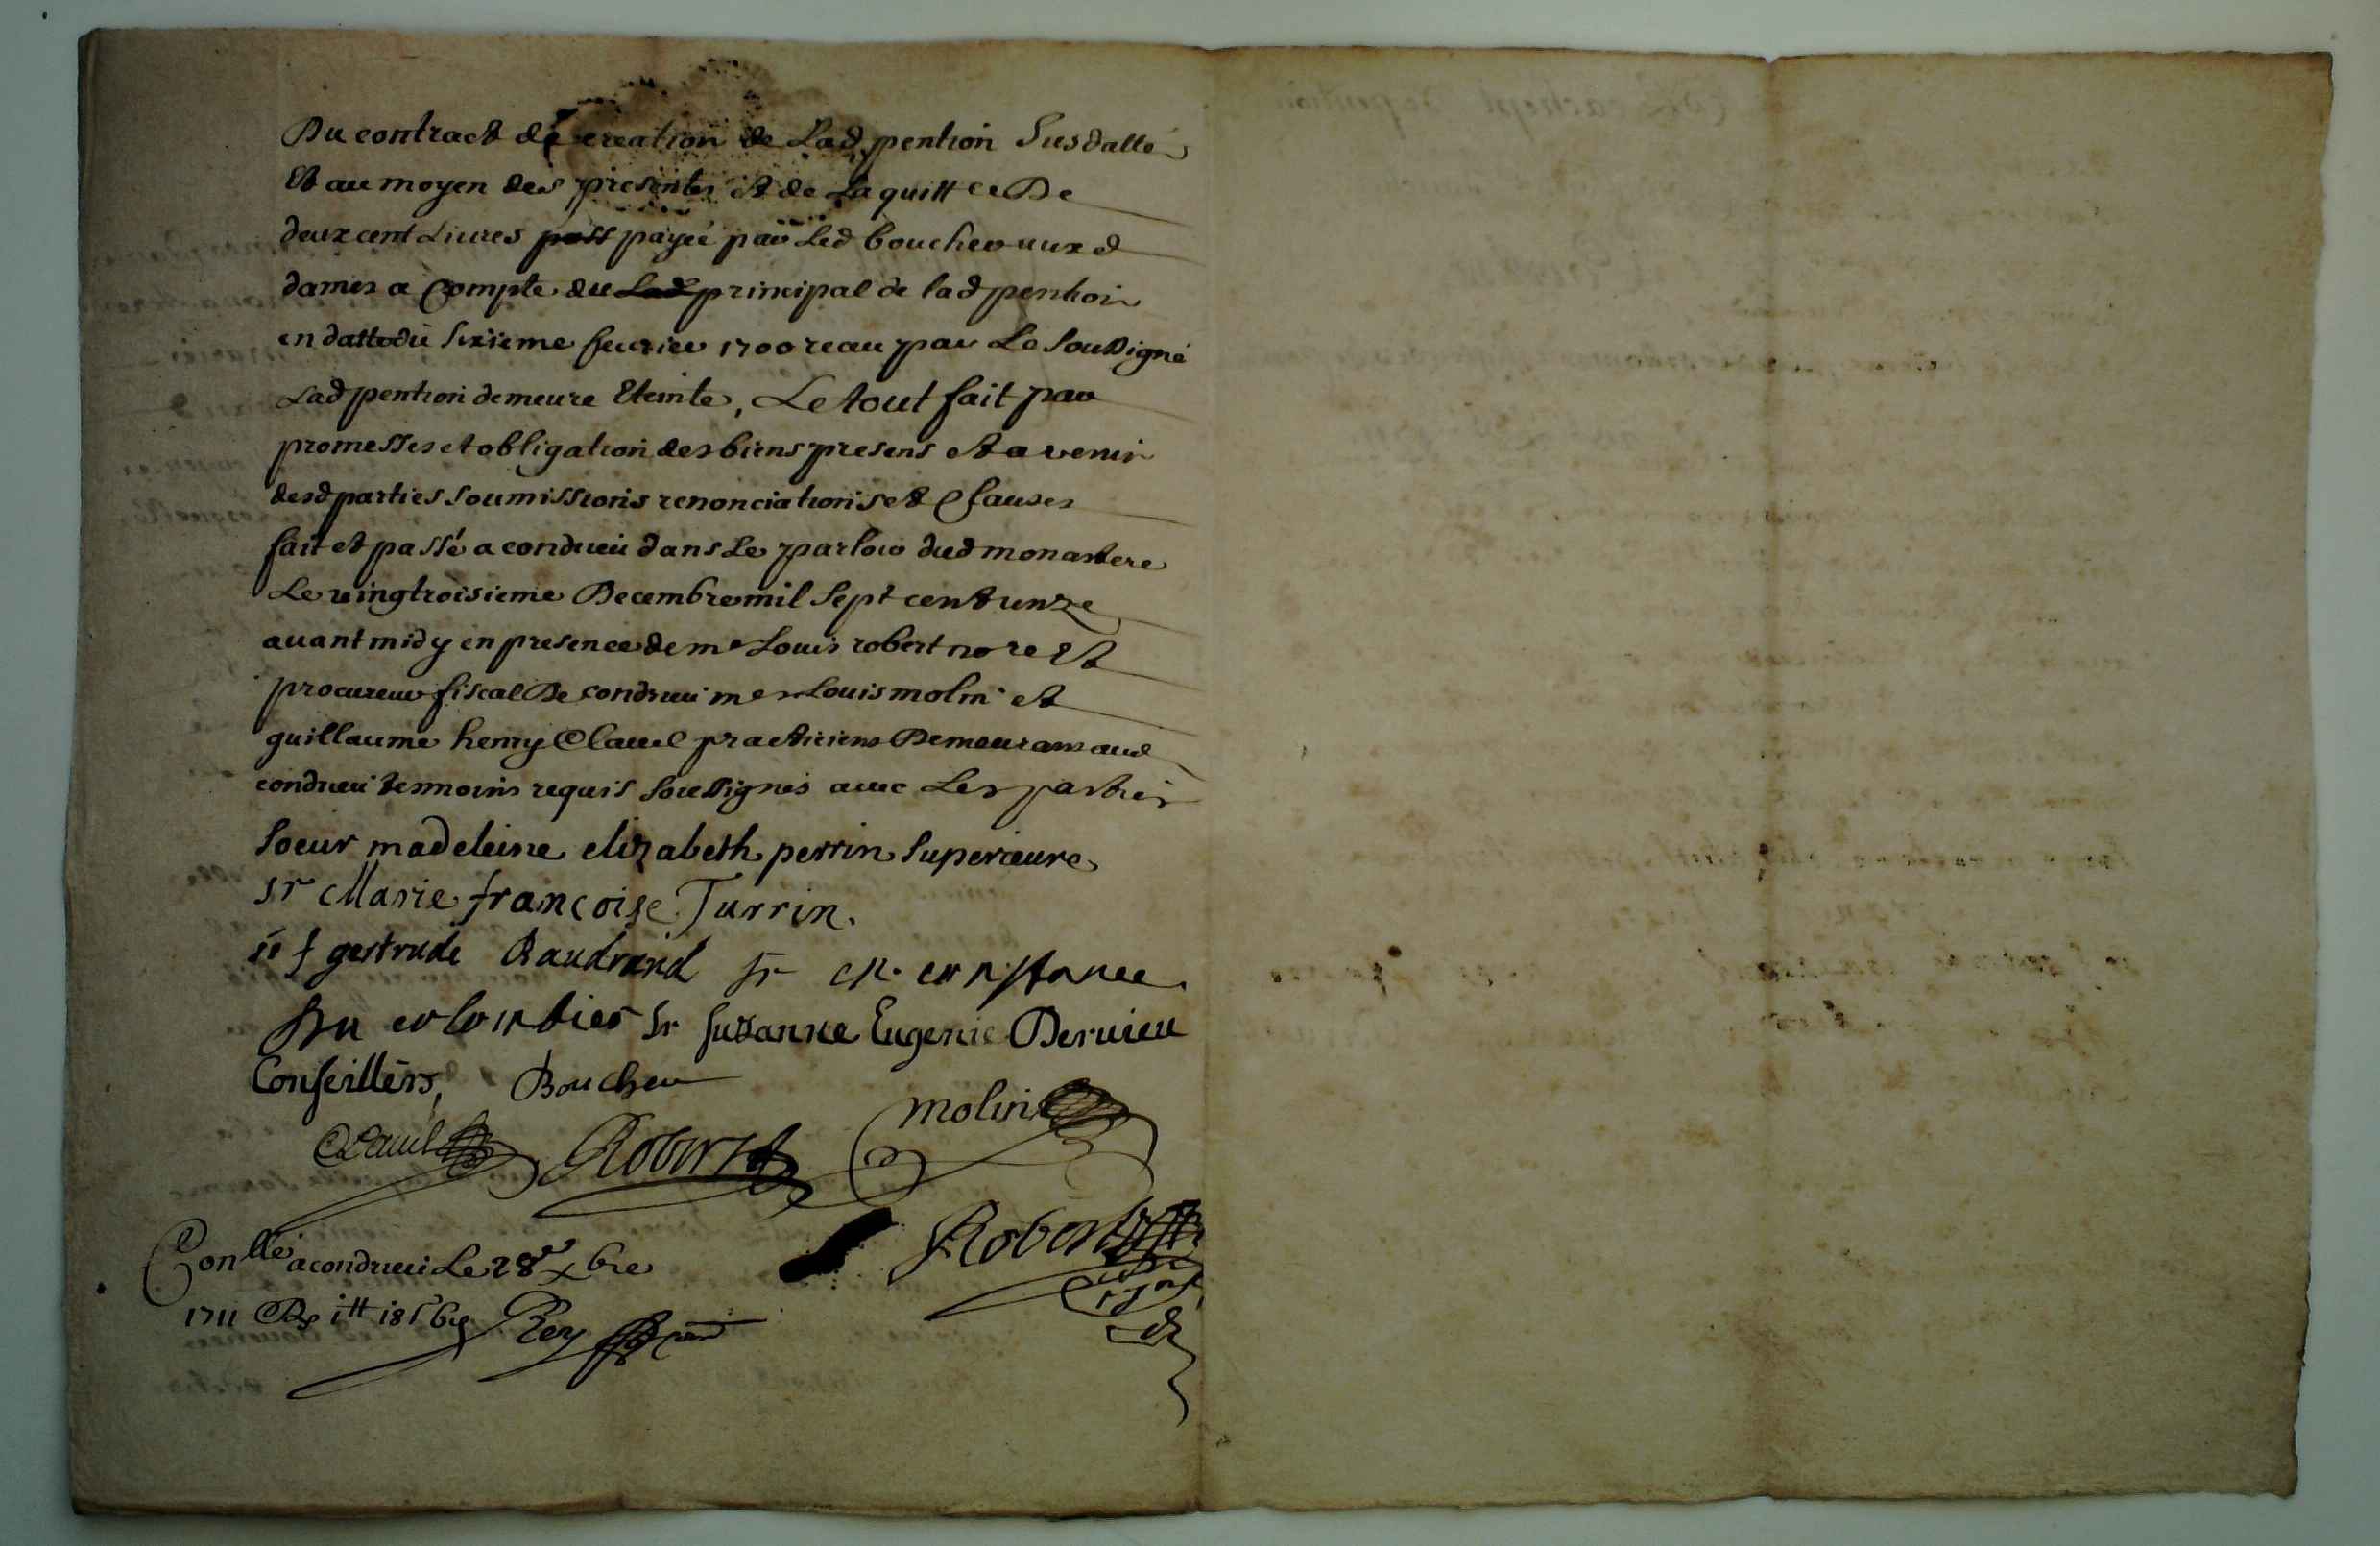 Du contract de creation de Lad pention Susdatté
Et au moyen des presentes et de La quittce De
deux cent Livres payée par Led boucher auxd
dames a Compte du principal de lad pention
en datte du sixieme fevrier 1700 receu par Le Soussigné
Lad pention demeure Eteinte, Le tout fait par
promesses et obligation des biens presens et a venir
desd parties soumissions renonciations et Clauses
fait et passé a condrieu dans Le parloir dud monastere
Le vingtroisieme Decembre mil Sept cent unze
avant midy en presence de me Louis robert nore Et
procureur fiscal De condrieu mes Louis molin et
guillaume henry Clavel practiciens Demeurans aud
condrieu tesmoins requis soussignés avec Les parties
Soeur madeleine elizabeth perrin Superieure
sr Marie françoise Turrin.
sr f gertrude Baudrand sr M. constance
Du colombier Sr Suzanne Eugenie Dervieu
Conseillers, Boucher
Clavel Robert molin
Conllé a condrieu Le 28e xbre Robert
1711 Rx itt 18s 6d Rey